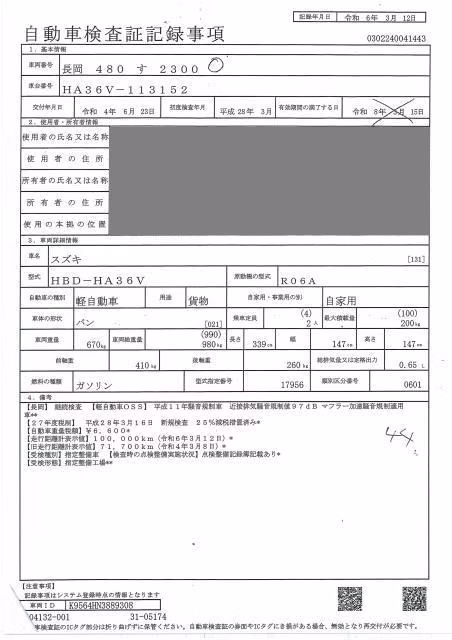 記録年月日 令和 6年 3月 12日
自動車検査証記録事項
0302240041443
1. 基本情報
車両番号 長岡 480 す 2300
車台番号 HA36V-113152
交付年月日 令和 4年 6月 23日 初度検査年月 平成 28年 3月 有効期間の満了する日 令和 8年 3月 15日
2. 使用者・所有者情報
使用者の氏名又は名称
使用者の住所
所有者の氏名又は名称
所有者の住所
使用の本拠の位置
3. 車両詳細情報
車名 スズキ [131]
型式 HBD-HA36V 原動機の型式 R06A
自動車の種別 軽自動車 用途 貨物 自家用・事業用の別 自家用
車体の形状 バン [021] 乗車定員 (4) 2人 最大積載量 (100) 200kg
車両重量 670kg 車両総重量 (990) 980kg 長さ 339cm 幅 147cm 高さ 147cm
前軸重 410kg 後軸重 260kg 総排気量又は定格出力 0.65 L
燃料の種類 ガソリン 型式指定番号 17956 類別区分番号 0601
4. 備考
【長岡】 継続検査 【軽自動車OSS】 平成11年騒音規制車 近接排気騒音規制値97dB マフラー加速騒音規制適用
車**
【27年度税制】 平成28年3月16日 新規検査 25%減税措置済み*
【自動車重量税額】 ¥6,600*
【走行距離計表示値】 100,000km (令和6年3月12日)*
【旧走行距離計表示値】 71,700km (令和4年3月8日)*
【受検種別】 指定整備車 【検査時の点検整備実施状況】 点検整備記録簿記載あり*
【受検形態】 指定整備工場**
【注意事項】
記録事項はシステム登録時点の情報となります
車両ID K9564HN3889308
04132-001 31-05174
車検査証のICタグ部分は折り曲げずに保管ください。自動車検査証の券面やICタグにき損がある場合、無効となり再交付が必要です。